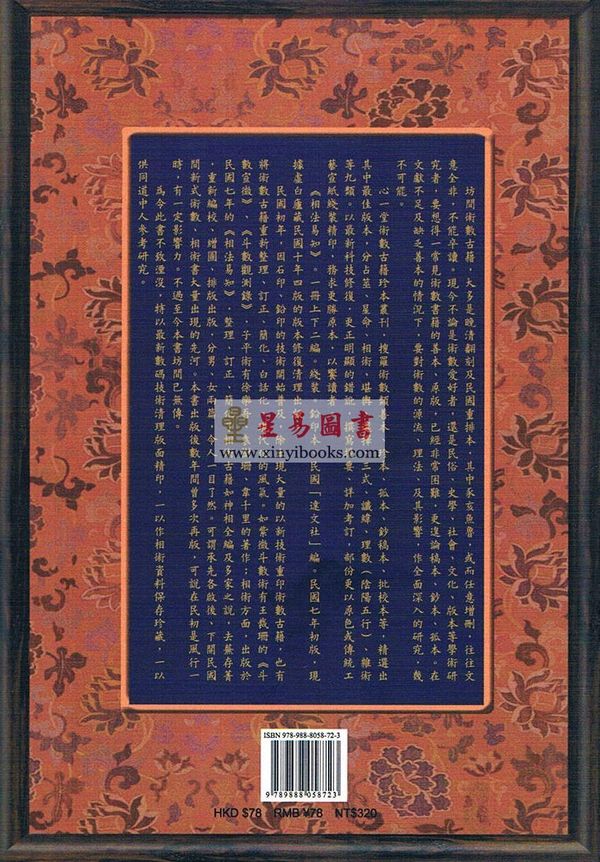 坊間術數古籍，大多是晚清翻刻及民國重排本，其中豕亥魚魯，或而任意增刪，往往文
意全非，不能卒讀。現今不論是術數愛好者，還是民俗、史學、社會、文化、版本等學術研
究者，要想得一常見術數書籍的善本、原版，已經非常困難，更遑論稿本、鈔本、孤本。在
文獻不足及缺乏善本的情況下，要對術數的源流、理法、及其影響，作全面深入的研究，幾
不可能。
心一堂術數古籍珍本叢刊，搜羅術數類善本、珍本、孤本、鈔稿本、批校本等，精選出
其中最佳版本，分占筮、星命、相術、堪輿、三式、讖緯、理數（陰陽五行）、雜術
等九類。以最新科技修復，更正明顯的錯訛，撰寫提要、詳加考訂，部份更以原色或傳統工
藝宣紙綫裝精印，務求更勝原本，以饗讀者
《相法易知》。一冊上下二編。綫裝。鉛印本。民國「達文社」編。民國七年初版，現
據虛白廬藏民國十四年四版的版本修復清理出
民國初年，因石印、鉛印的技術開始普及，現大量的以新技術重印術數古籍，也有
將術數古籍重新整理、訂正、簡化、白話化、代的風氣。如紫微斗數術有王栽珊的《斗
數宣微》、《斗數觀測錄》、子平術有徐樂吾、珊、韋千里的著作；相術方面，出版於
民國七年的《相法易知》，整理、訂正、簡古籍如神相全編及多家之說，去蕪存菁
，重新編校、增圖、排版出版，分男、女兩篇，令人一目了然，可謂承先啟後、下開民國
間新式術數、相術書大量出現的先河。本書出版後數年間曾多次再版，可說在民初是風行一
時，有一定影響力。不過至今本書坊間已無傳。
為令此書不致湮沒，特以最新數碼技術清理版面精印，一以作相術資料保存珍藏，一以
供同道中人參考研究。
星易圖書
www.xinyibooks.com
ISBN 978-988-8058-72-3
9 789888 058723
HKD $78 RMB ¥78 NT$320